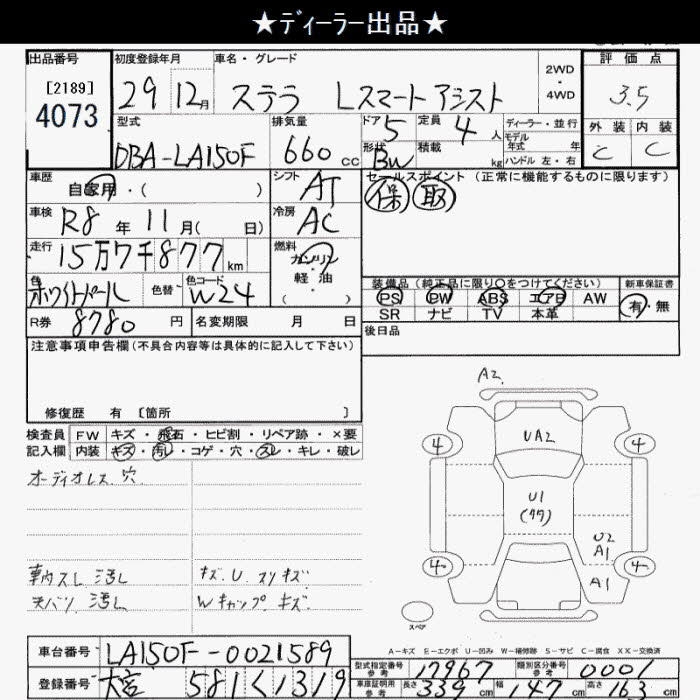 ★ディーラー出品★
出品番号 初度登録年月 車名・グレード 2WD ・ 4WD 評価点
[2189]
4073 29 12月 ステラ Lスマートアシスト 3.5
型式 排気量 ドア 定員 ディーラー・並行 外装 内装
DBA-LA150F 660cc 5 4人 モデル年式 年 C C
形状 積載 kg ハンドル 左・右
BW
車歴 シフト セールスポイント (正常に機能するものに限ります)
自家用・( ) AT 保 取
車検 R8年11月( 日) 冷房 AC
走行 15万7千877km 燃料 ガソリン・軽油( )
色 色替 色コード 装備品(純正品に限り○をつけてください) 新車保証書
ホワイトパール W24 PS PW ABS エアB AW 有・無
R券 8780円 名変期限 月 日 SR ナビ TV 本革
後日品
注意事項申告欄(不具合内容等は具体的に記入して下さい)
修復歴 有 [箇所 ]
検査員 FW キズ・飛石・ヒビ割・リペア跡・×要
記入欄 内装 キズ・汚レ・コゲ・穴・スレ・キレ・破レ
オーディオレス 穴
車内スレ 汚レ キズ.U.スリキズ
天バリ 汚レ Wキャップ キズ
A2
4 4
UA2
U1
(クワ)
U2
A1
4 4
A1
スペア
A-キズ E-エクボ U-凹み W-補修跡 S-サビ C-腐食 XX-交換済
車台番号 LA150F-0021589
型式指定番号 参考 17967 類別区分番号 参考 0001
登録番号 大宮 581く1319
車庫証明用 参考 長さ 339cm 幅 147cm 高さ 163cm